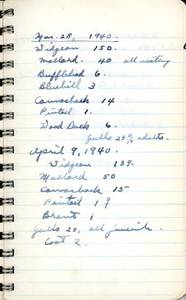 Mar. 28, 1940.
Widgeon 150.
Mallard. 40 all mating
Bufflehead 6.
Bluebill 3
Canvasback 14
Pintail 1.
Wood Duck 6.
Gulls 25% adults.
April 9, 1940.
Widgeon 139.
Mallard 50
Canvasback 15
Pintail 19
Brant 1
Gulls 20, all juvenile.
Coot 2.